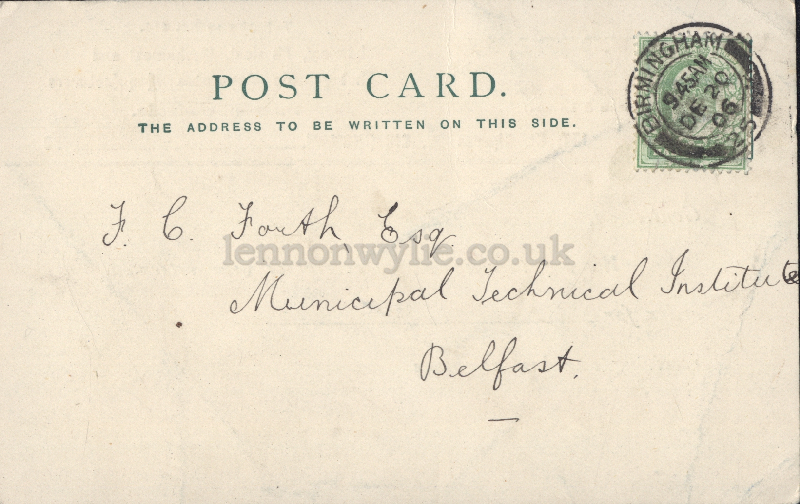 POST CARD.
THE ADDRESS TO BE WRITTEN ON THIS SIDE.
BIRMINGHAM
9.45AM
DE 20
06
F. C. Forth, Esq.
lennonwylie.co.uk
Municipal Technical Institute
Belfast.